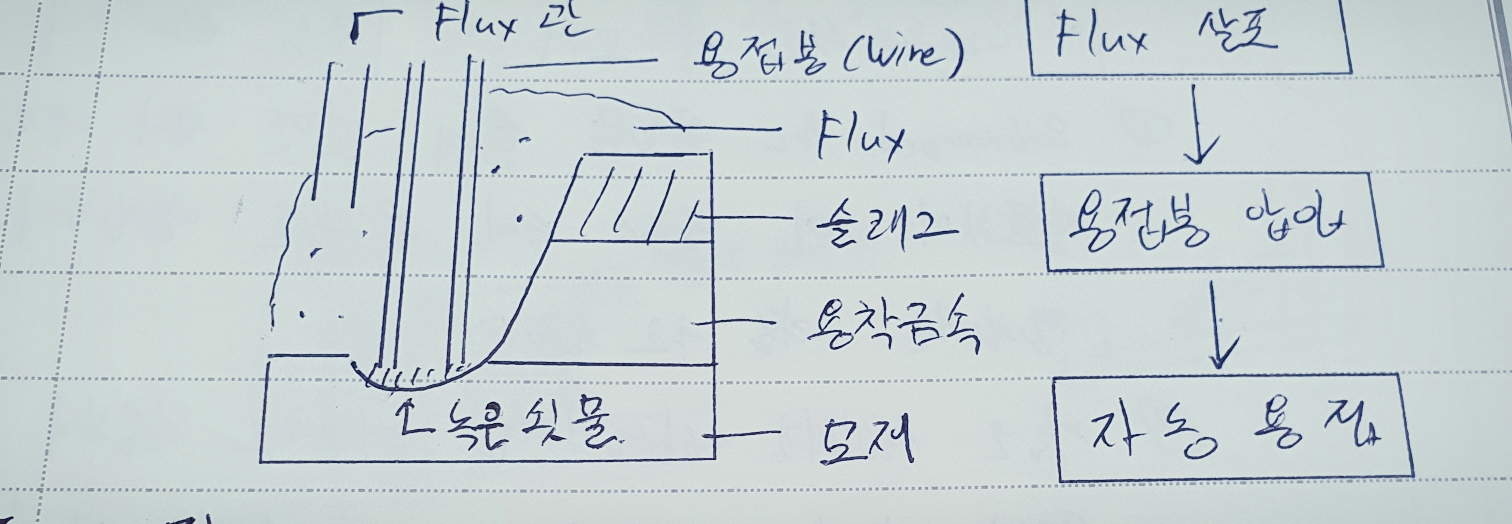 Flux 관
용접봉 (Wire)
Flux
슬래그
용착금속
모재
녹은 쇳물
Flux 살포
용접봉 압입
자동용접